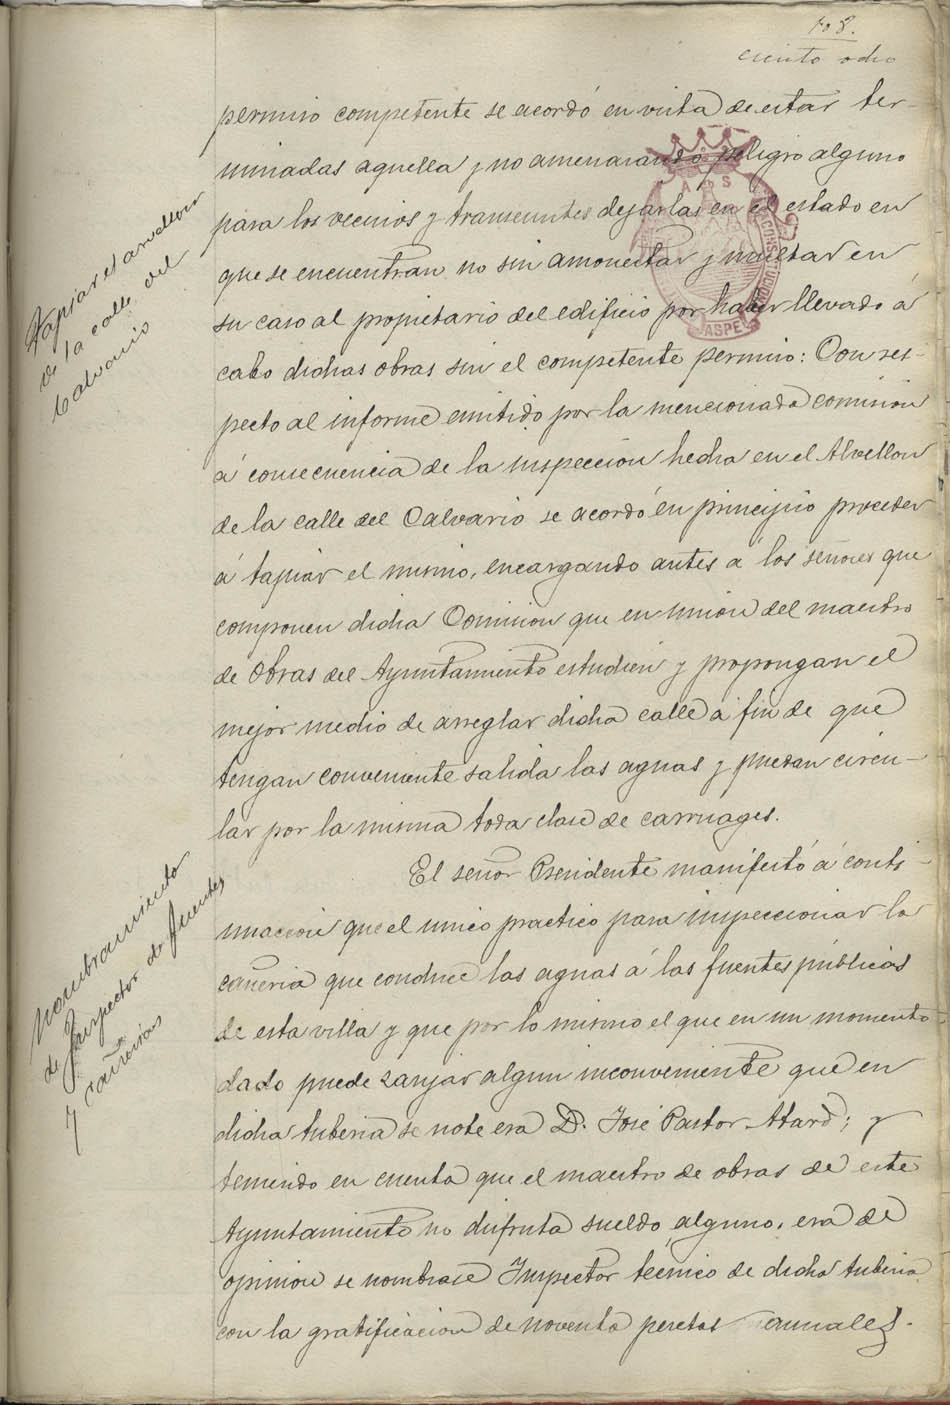 108.
ciento ocho
permiso competente se acordó en vista de estar ter-
minadas aquella y no amenazando peligro alguno
para los vecinos y transeuntes dejarlas en el estado en
que se encuentran no sin amonestar y multar en
su caso al propietario del edificio por haber llevado á
cabo dichas obras sin el competente permiso: Con res-
pecto al informe emitido por la mencionada comision
á consecuencia de la inspeccion hecha en el Alvellon
de la calle del Calvario se acordó en principio proceder
á tapiar el mismo, encargando antes á los señores que
componen dicha Comision que en union del maestro
de Obras del Ayuntamiento estudien y propongan el
mejor medio de arreglar dicha calle á fin de que
tengan conveniente salida las aguas y puedan circu-
lar por la misma toda clase de carruages.
El señor Presidente manifestó á conti-
nuacion que el unico practico para inspeccionar la
cañeria que conduce las aguas á las fuentes públicas
de esta villa y que por lo mismo el que en un momento
dado puede zanjar algun inconveniente que en
dicha tuberia se note era D. José Pastor Atard; y
teniendo en cuenta que el maestro de obras de este
Ayuntamiento no disfruta sueldo alguno, era de
opinion se nombrase Inspector tecnico de dicha tuberia
con la gratificacion de noventa pesetas anuales.
Tapiar el arvellon
de la calle del
Calvario
Nombramiento
de Inspector de fuentes
y cañerias
CONSTITUCIONAL
ASPE